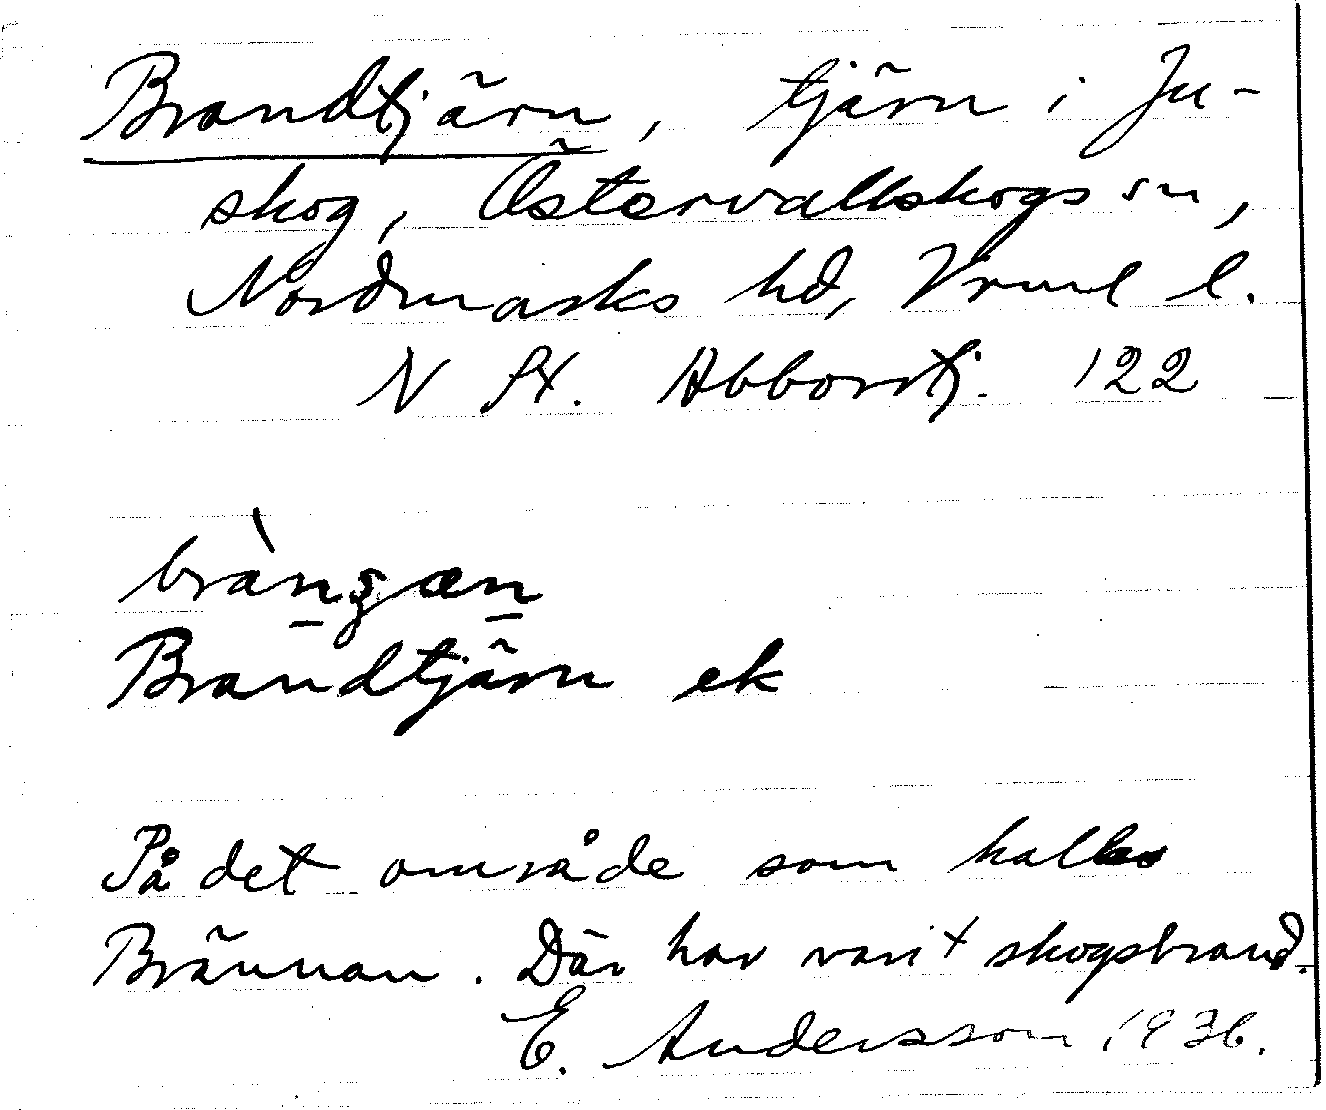 Brandtjärn, tjärn i Ju-
skog, Östervallskogs sn,
Nordmarks hd, Vrml l.
N St. Abborrtj. 122
Brandtjärn ek
På det område som kallas
Brännan. Där har varit skogsbrand.
E. Andersson 1936.